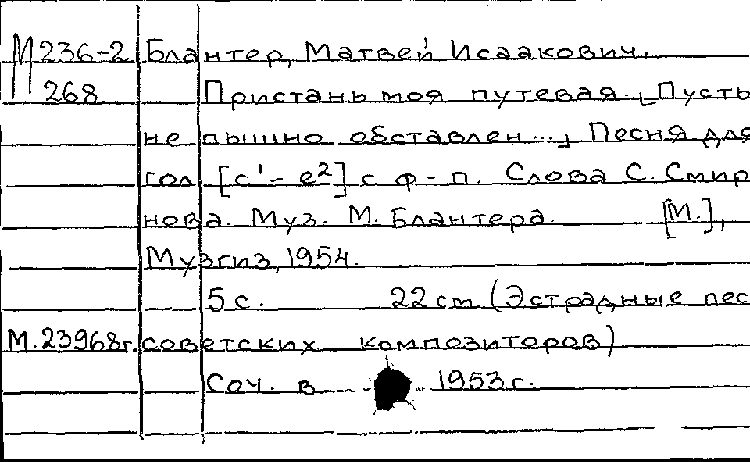 М236-2 Блантер, Матвей Исаакович.
268 Пристань моя путевая. „Пусть
не пышно обставлен...„ Песня для
гол. [c¹-e²] с ф-п. Слова С. Смир
нова. Муз. М. Блантера. [М.],
Музгиз, 1954.
5 с. 22 см. (Эстрадные пес
М.23968г. советских композиторов)
Соч. в 1953 г.